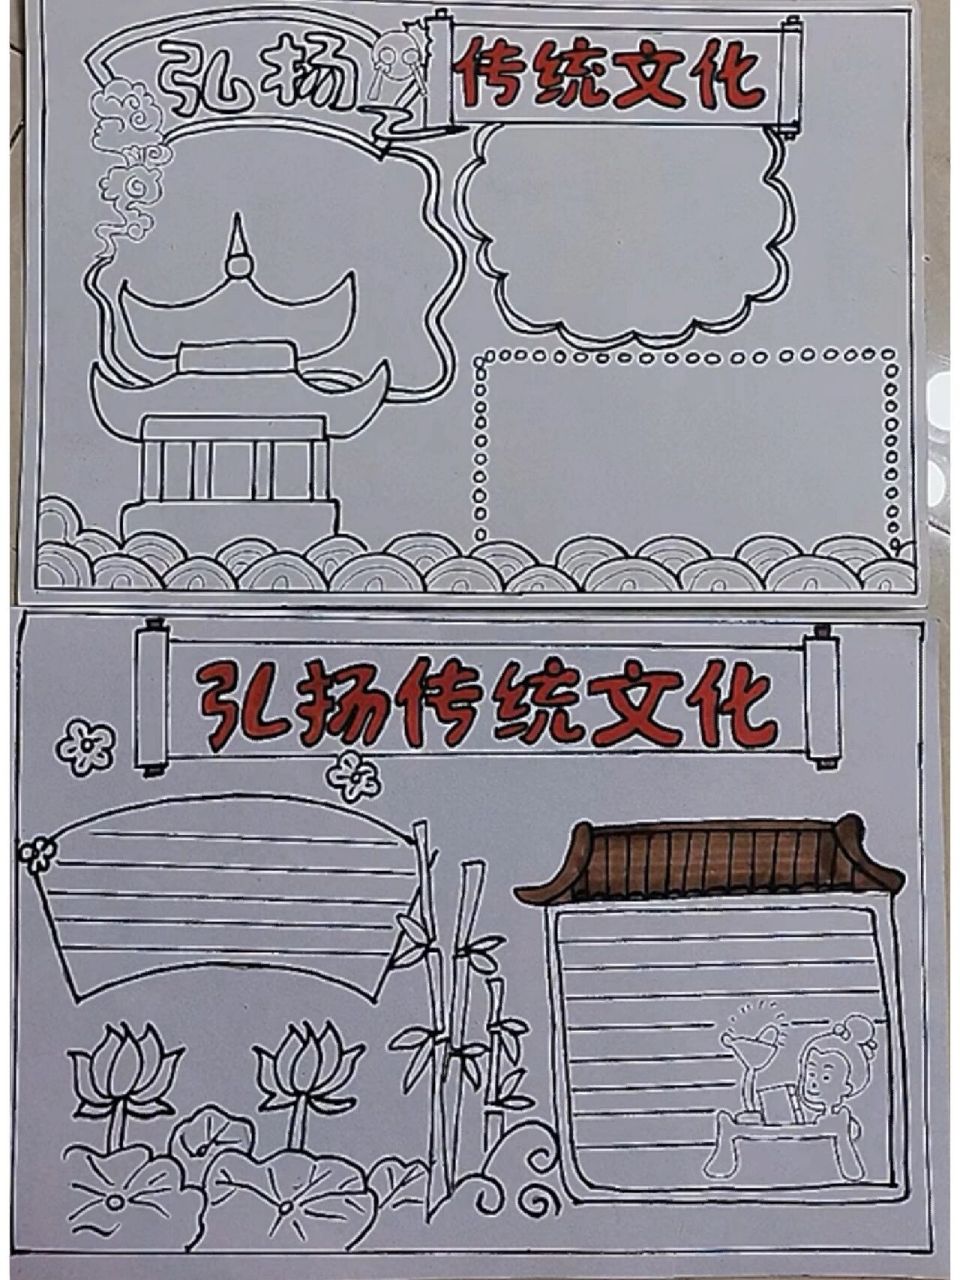 弘扬
传统文化
弘扬传统文化